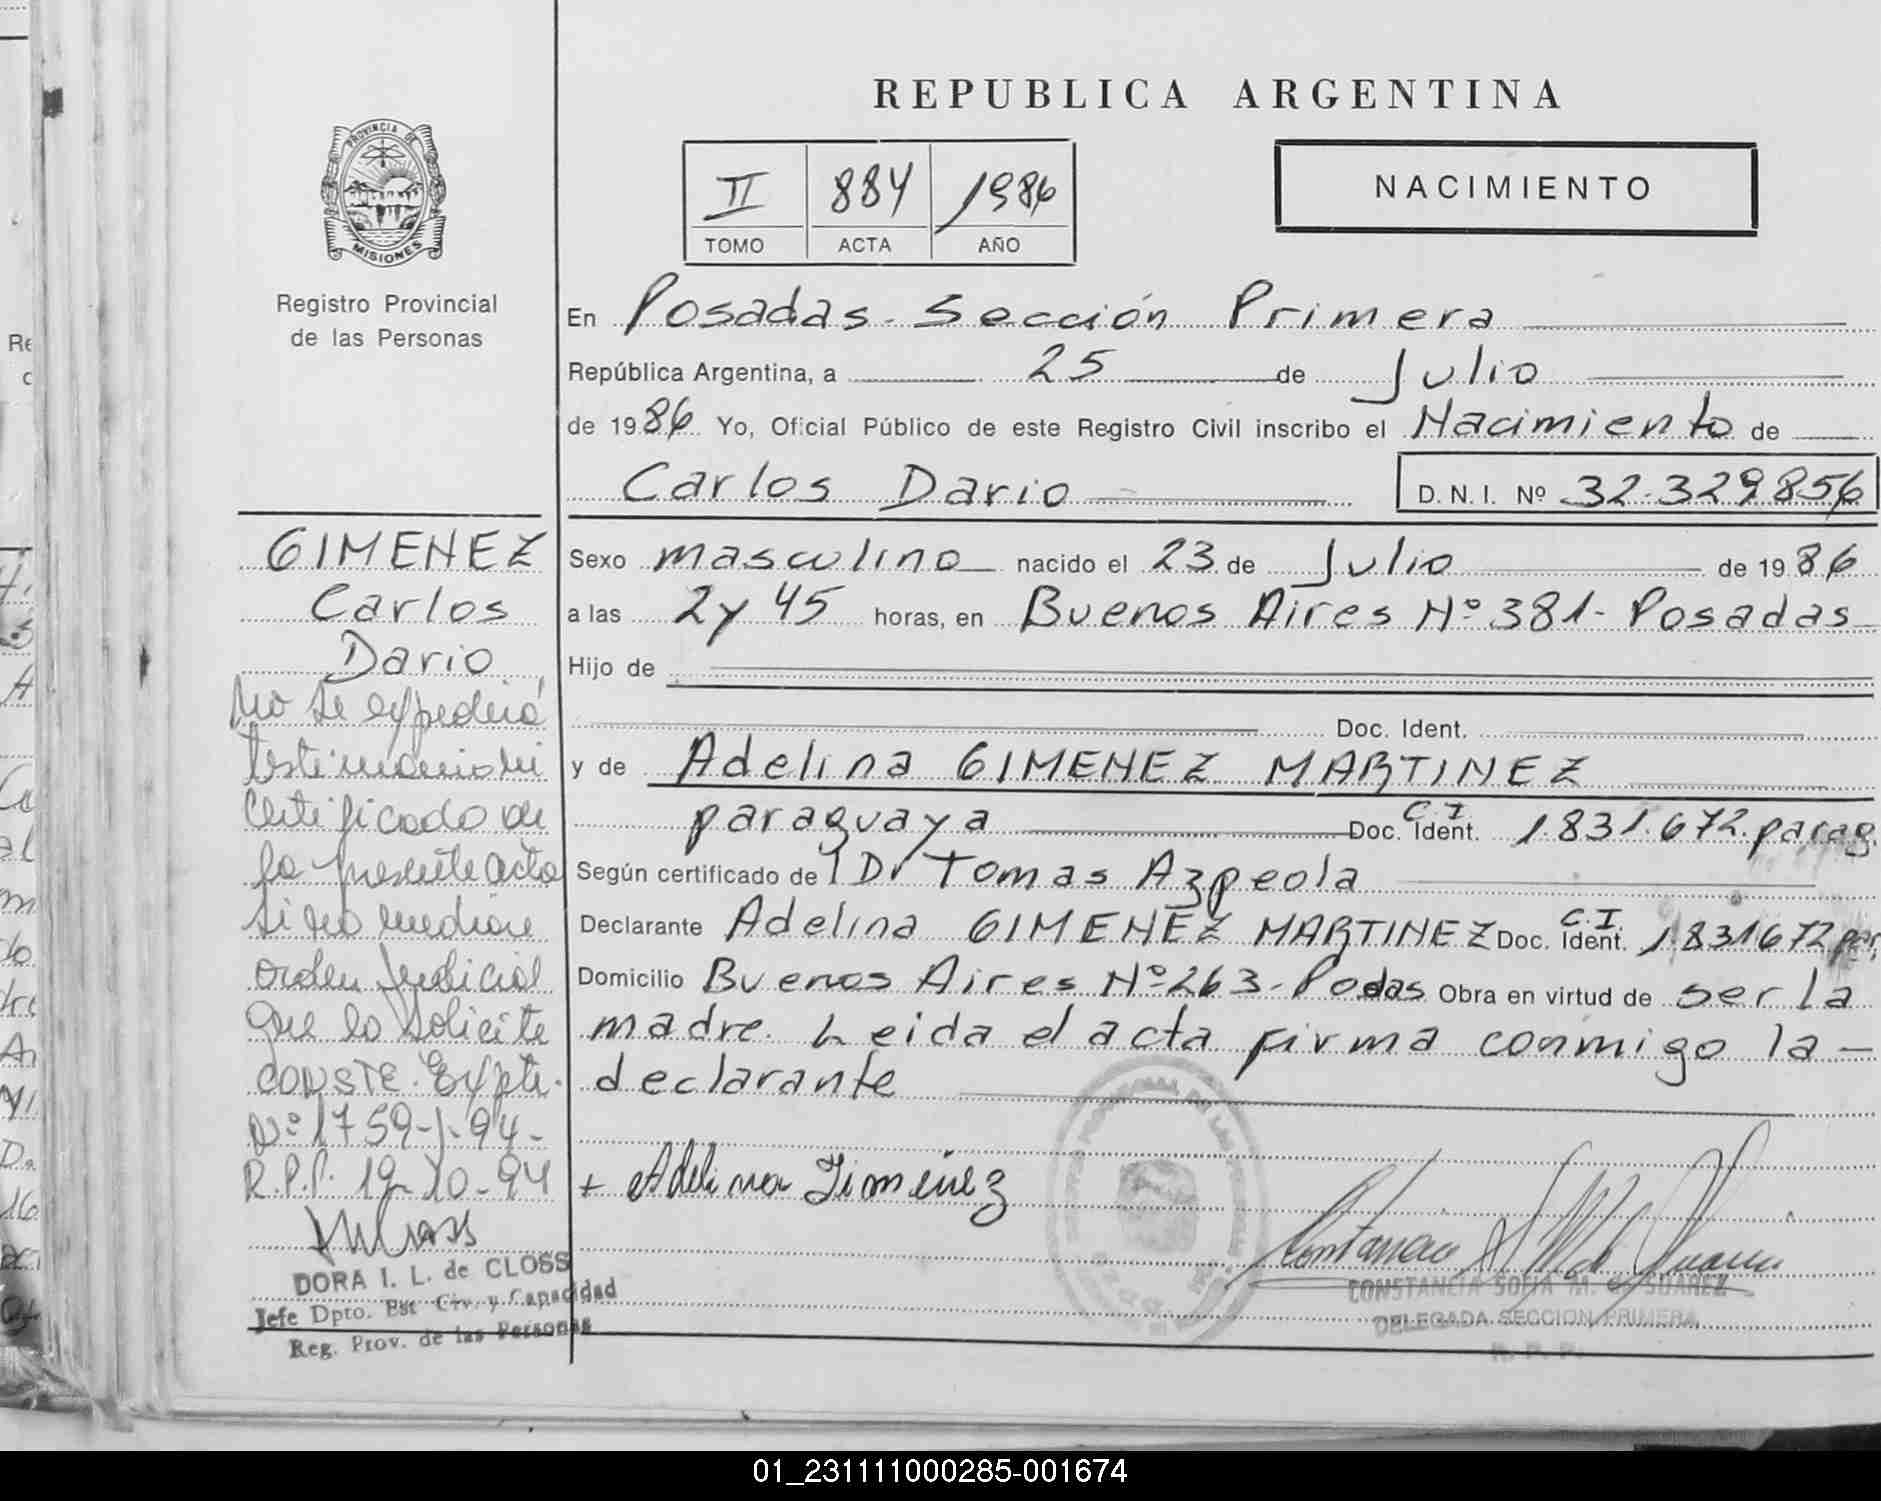 REPUBLICA ARGENTINA
PROVINCIA DE
MISIONES
Registro Provincial
de las Personas
II 884 1986
TOMO ACTA AÑO
NACIMIENTO
En Posadas - Sección Primera
República Argentina, a 25 de Julio
de 1986 Yo, Oficial Público de este Registro Civil inscribo el Nacimiento de
Carlos Dario D.N.I. Nº 32.329.856
GIMENEZ
Carlos
Dario
No se expedirá
testimonio ni
Certificado de
la presente acta
si no mediare
orden Judicial
que lo solicite
CONSTE. Expte.
Nº 1759-1-94-
R.P.P. 19-10-94
DORA I. L. de CLOSS
Jefe Dpto. Est. Civ. y Capacidad
Reg. Prov. de las Personas
Sexo masculino nacido el 23 de Julio de 1986
a las 2 y 45 horas, en Buenos Aires Nº 381 - Posadas
Hijo de
Doc. Ident.
y de Adelina GIMENEZ MARTINEZ
paraguaya Doc. Ident. C.I 1.831.672.parag.
Según certificado del Dr Tomas Azpeola
Declarante Adelina GIMENEZ MARTINEZ Doc. Ident. C.I 1.831672 par,
Domicilio Buenos Aires Nº 263 - Podas Obra en virtud de ser la
madre. Leida el acta firma conmigo la -
declarante
+ Adelina Jimenez
CONSTANCIA SOFIA M. de SUAREZ
DELEGADA SECCION PRIMERA
R. P. P.
01_231111000285-001674